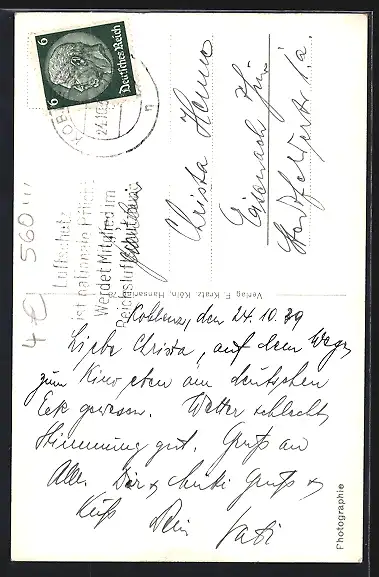 6 6
Deutsches Reich
KOB
24.10.3
Luftschutz
ist nationale Pflicht
Werdet Mitglied im
Reichsluftschutzbund
Christa
Eisenach Thür
Verlag F. Kratz, Köln, Hansaring
4€ 560
Koblenz, den 24.10.39
Liebe Christa, auf dem Wege
zum Kino eben am deutschen
Eck gewesen. Wetter schlecht,
Stimmung gut. Gruß an
Alle. Dir & Mutti Gruß &
Kuß Dein Vati
Photographie